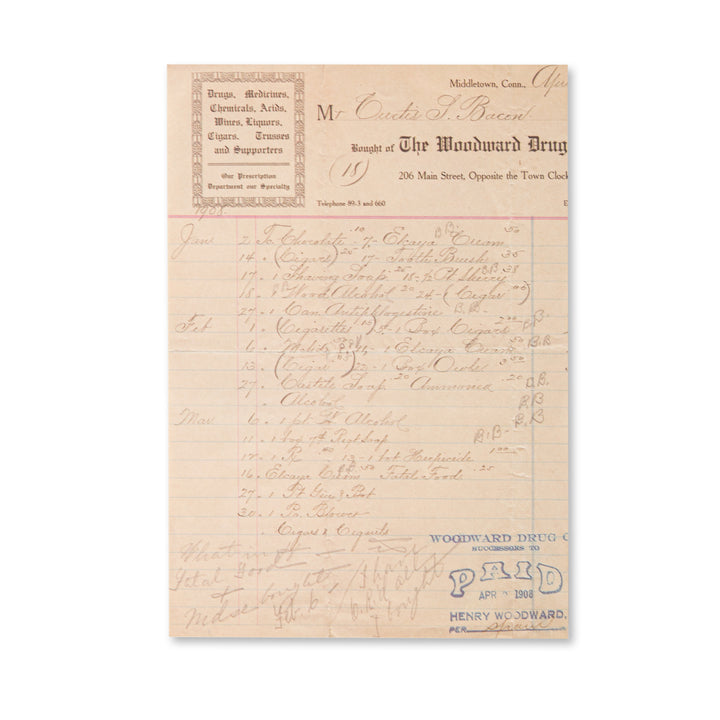 Drugs, Medicines,
Chemicals, Acids,
Wines, Liquors,
Cigars, Trusses
and Supporters
Our Prescription
Department our Specialty
Middletown, Conn.,
Mr Curtis S. Bacon
Bought of The Woodward Drug
(18)
206 Main Street, Opposite the Town Cloc
Telephone 89-3 and 660
1908.
Jan 2 To Chocolate 10 7- Elcaya Cream 50
14 (Cigars) 25 17- Tooth Brush 35
17 1 Shaving Soap 25 18- 1/2 Pt Sherry 38
18 Wood Alcohol 20 24- (Cigar)
27 1 Can Antiphlogestine B.B.
Feb 1 (Cigarettes 15) 5-1 Box Cigars 2.00 B.B.
6 1 Elcaya Cream 50 B.B
13 (Cigar) 22-1 Box Owls
27 Castile Soap 20 Ammonia 20 B.B.
Alcohol B.B
Mar 6 1 pt Alcohol B.B
11 1 Soap B.B.
12 1 R 13-1 bot Herpicide 1.00
16 Elcaya Cream 50 Fatal Food 25
27 1 Pt Gin
30 1 Po. Blower
Cigars &
What is
Fatal Food
+
Mdse bought
Feb 6
I bought
WOODWARD DRUG C
SUCCESSORS TO
PAID
APR 1908
HENRY WOODWARD.
PER